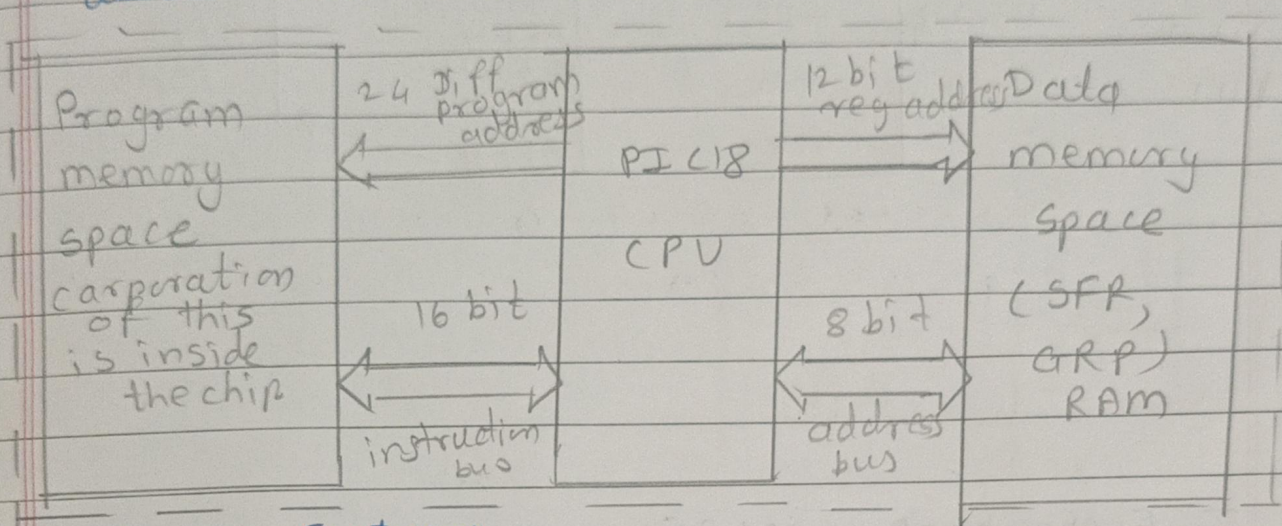 Program
memory
space
carporation
of this
is inside
the chip
24 Diff
program
address
16 bit
instruction
bus
PIC18
CPU
12 bit
reg address
8 bit
address
bus
Data
memory
space
(SFR,
GRP)
RAM